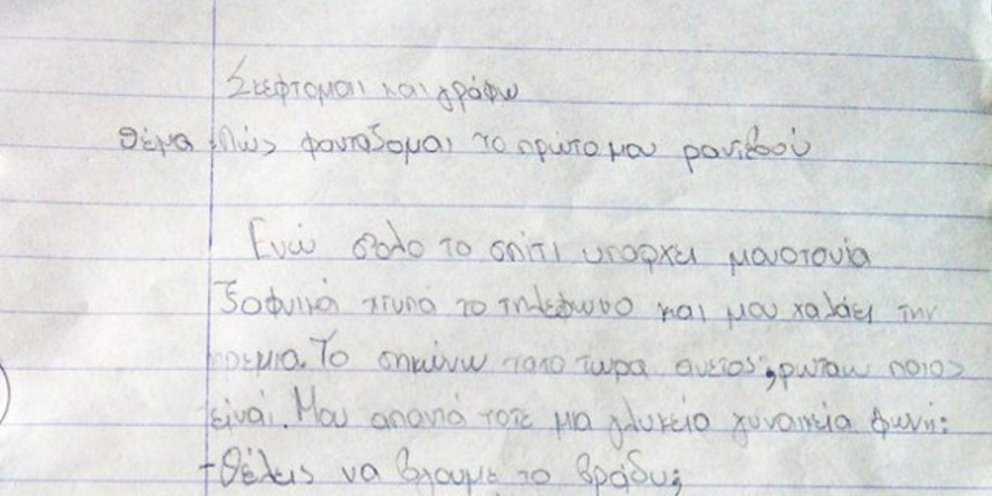 Σκέφτομαι και γράφω
Θέμα: Πώς φανταζομαι το πρώτο μου ραντεβού
Ενώ σ'όλο το σπίτι υπαρχει μονοτονία
Ξαφνικά χτυπά το τηλέφωνο και μου χαλάει την
ηρεμια. Το σηκώνω τωρα ρωταω ποιος
είναι. Μου απαντά τοτε μια γλυκεία γυναικεία φωνή:
-Θέλεις να βγουμε το βράδυ;